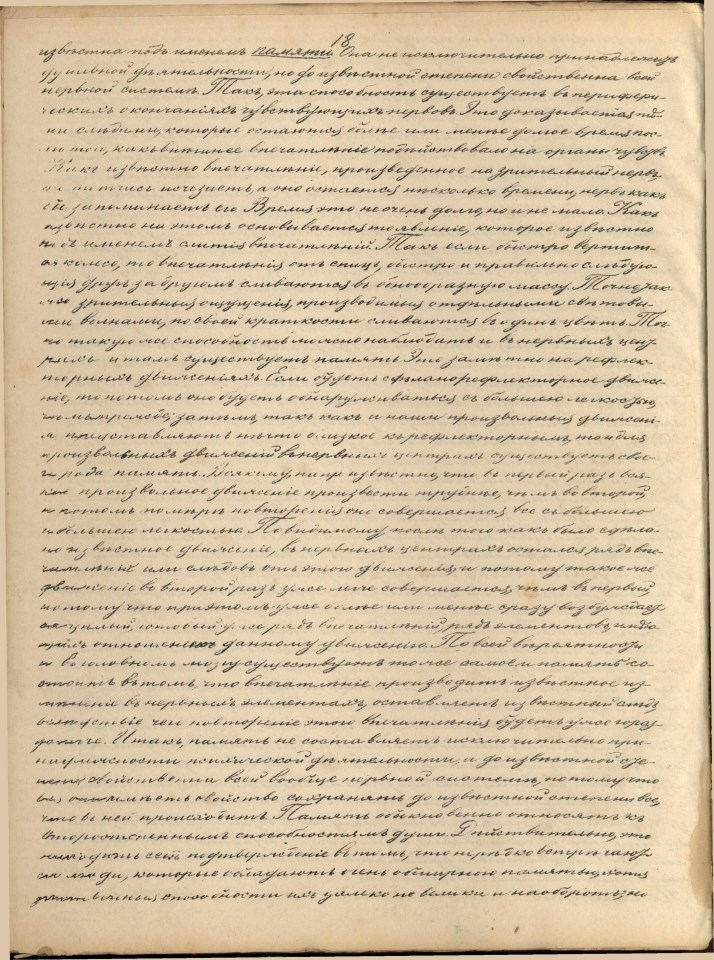 18
извѣстна подъ именемъ памяти. Она не исключительно принадлежитъ
душевной дѣятельности, но до извѣстной степени свойственна всей
нервной системѣ. Такъ, эта способность существуетъ въ перифери-
ческихъ окончаніяхъ чувствующихъ нервовъ. Это доказывается тѣ-
ми слѣдами, которые остаются болѣе или менѣе долгое время пос-
лѣ того, какъ внѣшнее впечатлѣніе подѣйствовало на органъ чувствъ.
Какъ извѣстно впечатлѣніе, произведенное на зрительный нервъ
не тотчасъ исчезаетъ, а оно остается нѣсколько времени, нервъ какъ
бы запоминаетъ его. Время это не очень долго, но и не мало. Какъ
извѣстно на этомъ основывается то явленіе, которое извѣстно
подъ именемъ слитія впечатлѣній. Такъ если быстро вертит-
ся колесо, то впечатлѣнія отъ спицъ, быстро и правильно слѣдую-
щія другъ за другомъ сливаются въ однообразную массу. Точно так-
же зрительныя ощущенія, производимыя отдѣльными свѣтовы-
ми волнами, по своей краткости сливаются въ одинъ цвѣтъ. Точ-
но такую же способность можно наблюдать и въ нервныхъ цент-
рахъ и тамъ существуетъ память. Это замѣтно на рефлек-
торныхъ движеніяхъ. Если будетъ сдѣлано рефлекторное движе-
ніе, то потомъ оно будетъ обнаруживаться съ большею легкостію,
чѣмъ прежде; затѣмъ, такъ какъ и наши произвольныя движені-
я представляютъ нѣчто близкое къ рефлекторнымъ, то и для
произвольныхъ движеній въ нервныхъ центрахъ существуетъ свое-
го рода память. Всякому, напр. извѣстно, что въ первый разъ вся-
кое произвольное движеніе произвести труднѣе, чѣмъ во второй
и потомъ по мѣрѣ повторенія оно совершается все съ большею
и большею легкостью. Повидимому послѣ того какъ было сдѣла-
но извѣстное движеніе, въ нервныхъ центрахъ остался рядъ впе-
чатлѣній или слѣдовъ отъ этого движенія, и потому такое же
движеніе во второй разъ уже легче совершается, чѣмъ въ первый,
потому что при этомъ уже болѣе или менѣе сразу возбуждает-
ся цѣлый, готовый уже рядъ впечатлѣній, рядъ элементовъ
относящихся данному движенію. По всей вѣроятности
и въ головномъ мозгу существуетъ то же самое и память со-
стоитъ въ томъ, что впечатлѣніе производитъ извѣстное из-
мѣненіе въ нервныхъ элементахъ, оставляетъ извѣстный слѣдъ
вслѣдствіе чего повтореніе этого впечатлѣнія будетъ уже гораз-
до легче. И такъ, память не составляетъ исключительно при-
надлежности психической дѣятельности, и до извѣстной сте-
пени свойственна всей вообще нервной системѣ, потому что
имѣетъ свойство сохранять до извѣстной степени все,
что въ ней происходитъ. Память обыкновенно относятъ къ
второстепеннымъ способностямъ души. Дѣйствительно, это
находитъ себѣ подтвержденіе въ томъ, что нерѣдко встрѣчают-
ся люди, которые обладаютъ очень обширною памятью, хотя
способности ихъ далеко не велики и наоборотъ; но